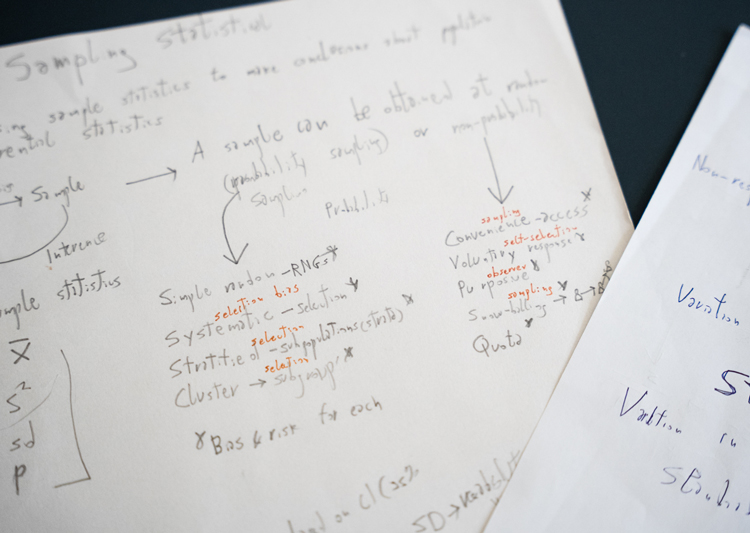 Sampling Statistics
sample statistics to make conclusions about population
statistics
A sample can be obtained at random
(probability sampling) or non-probability
→ Sample →
sampling
Probability
Inference
sample statistics
X̄
S²
sd
p
Simple random - RNGs*
selection bias
Systematic - selection*
selection
Stratified - subpopulations (strata)*
selection
Cluster → subgroups*
* Bias & risk for each
sampling
Convenience - access*
self-selection
Voluntary response*
observer
Purposive*
sampling
Snow-balling*
Quota*
on CI (95%
SD →
Non-res
Variation
Variation in